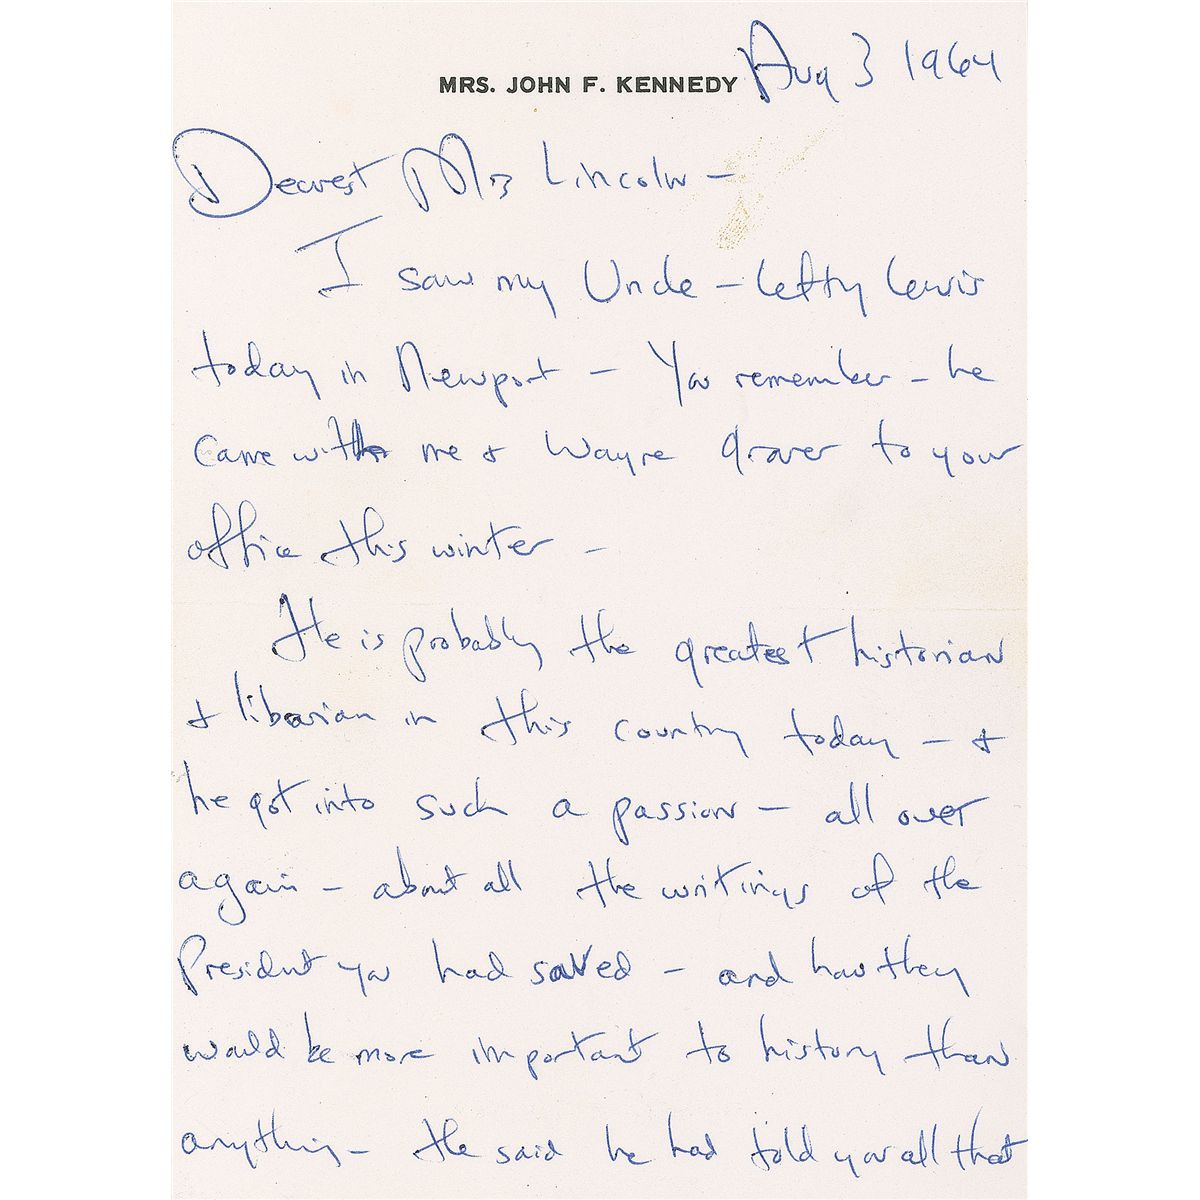 MRS. JOHN F. KENNEDY Aug 3 1964
Dearest Mrs Lincoln –
I saw my Uncle – Lefty Lewis
today in Newport – You remember – he
came with me & Wayne Grover to your
office this winter –
He is probably the greatest historian
& librarian in this country today – &
he got into such a passion – all over
again – about all the writings of the
President you had saved – and how they
would be more important to history than
anything – He said he had told you all that